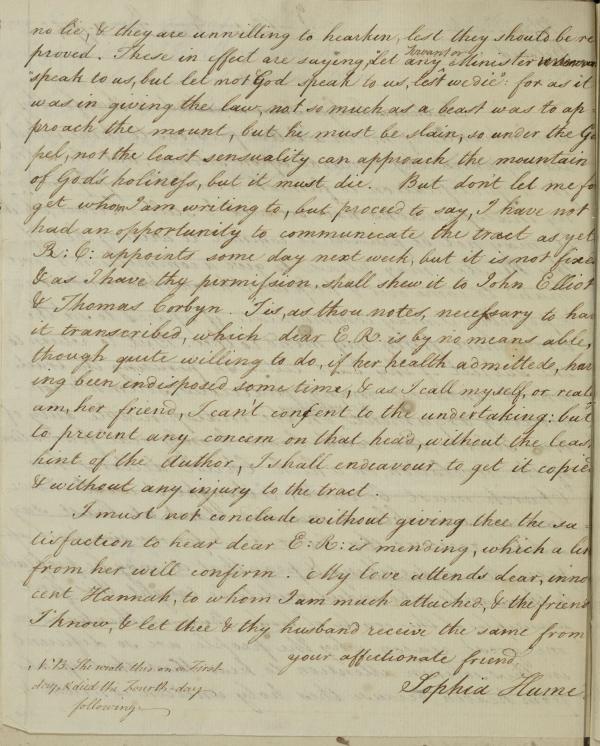 no lie, & they are unwilling to hearken, lest they should be re
proved. These in effect are saying "Let any Servant or Minister
"speak to us, but let not God speak to us, lest we die": for as it
was in giving the law, not so much as a beast was to ap-
proach the mount, but he must be slain, so under the Go
pel, not the least sensuality can approach the mountain
of God's holiness, but it must die. But don't let me fo
get whom I am writing to, but proceed to say, I have not
had an opportunity to communicate the tract as yet
R: C: appoints some day next week, but it is not fixed
& as I have thy permission, shall shew it to John Elliot
& Thomas Corbyn. Tis, as thou notes, necessary to ha
it transcribed, which dear E.R. is by no means able,
though quite willing to do, if her health admitted, hav
ing been indisposed some time, & as I call myself, or reall
am, her friend, I can't consent to the undertaking: but
to prevent any concern on that head, without the leas
hint of the Author, I shall endeavour to get it copied
& without any injury to the tract.
I must not conclude without giving thee the sa-
tisfaction to hear dear E: R: is mending, which a lin
from her will confirm. My love attends dear, inno
cent Hannah, to whom I am much attached, & the friend
I know, & let thee & thy husband receive the same from
your affectionate friend
Sophia Hume.
N.B. She wrote this on a First
day, & died the Fourth-day
following